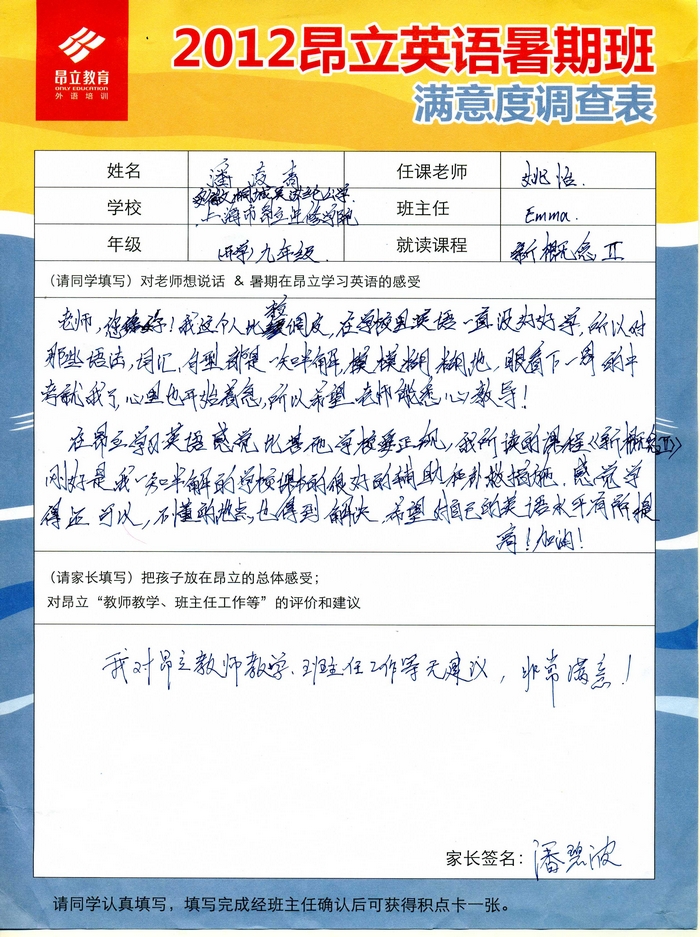 昂立教育
ONLY EDUCATION
外语培训
2012昂立英语暑期班
满意度调查表
姓名 潘 青 任课老师 姚怡
学校 上海市昂立进修学院 班主任 Emma.
年级 (开学)九年级. 就读课程 新概念II
(请同学填写) 对老师想说话 & 暑期在昂立学习英语的感受
老师,你好!我这个人比较调皮,在学校里英语一直没好好学,所以对
那些语法,词汇,句型都是一知半解,模模糊糊地,眼看下一界的中
考就我了,心里也开始着急,所以希望老师能悉心教导!
在昂立学习英语感觉比其他学校要正规,我所读的课程《新概念II》
刚好是我一知半解的学校课本的很好的辅助和补救措施.感觉学
得还可以,不懂的地点,也得到解决,希望对自己的英语水平有所提
高!加油!
(请家长填写) 把孩子放在昂立的总体感受;
对昂立“教师教学、班主任工作等”的评价和建议
我对昂立教师教学、班主任工作等无建议,非常满意!
家长签名: 潘碧波
请同学认真填写,填写完成经班主任确认后可获得积点卡一张。